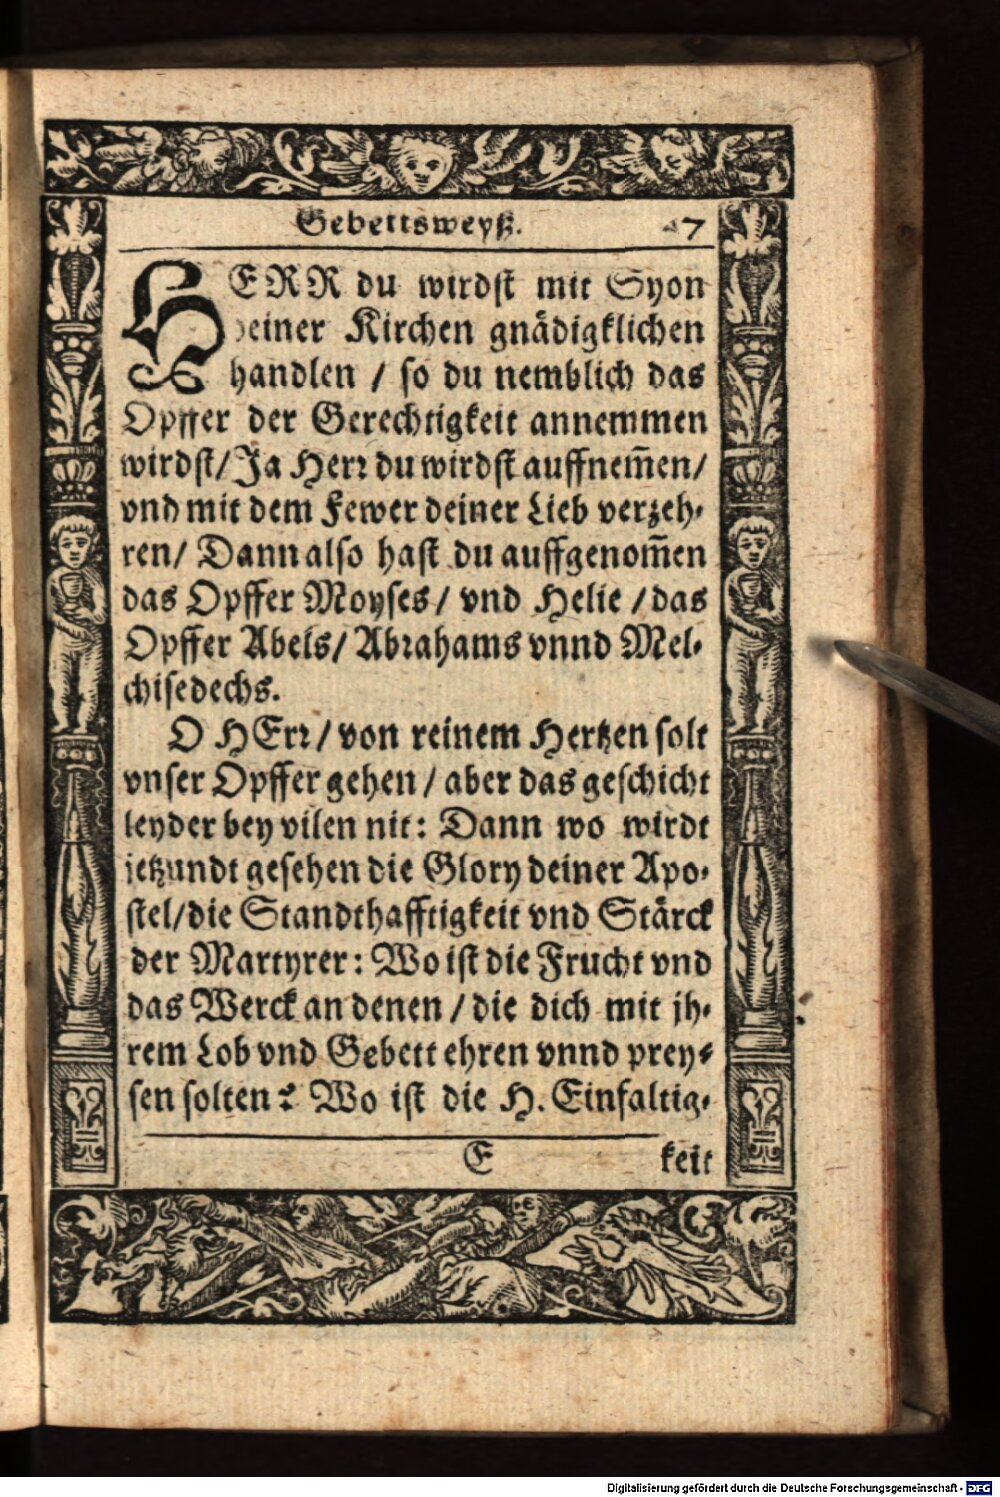 Gebettsweyß. 27
HERR du wirdst mit Syon
deiner Kirchen gnädigklichen
handlen / so du nemblich das
Opffer der Gerechtigkeit annemmen
wirdst/ Ja Herr du wirdst auffnem̃en/
vnd mit dem Fewer deiner Lieb verzeh-
ren/ Dann also hast du auffgenom̃en
das Opffer Moyses / vnd Helie / das
Opffer Abels/ Abrahams vnnd Mel-
chisedechs.
O HErr / von reinem Hertzen solt
vnser Opffer gehen / aber das geschicht
leyder bey vilen nit: Dann wo wirdt
jetzundt gesehen die Glory deiner Apo-
stel/die Standthafftigkeit vnd Stärck
der Martyrer: Wo ist die Frucht vnd
das Werck an denen / die dich mit jh-
rem Lob vnd Gebett ehren vnnd prey-
sen solten? Wo ist die H. Einfaltig-
E keit
Digitalisierung gefördert durch die Deutsche Forschungsgemeinschaft - DFG